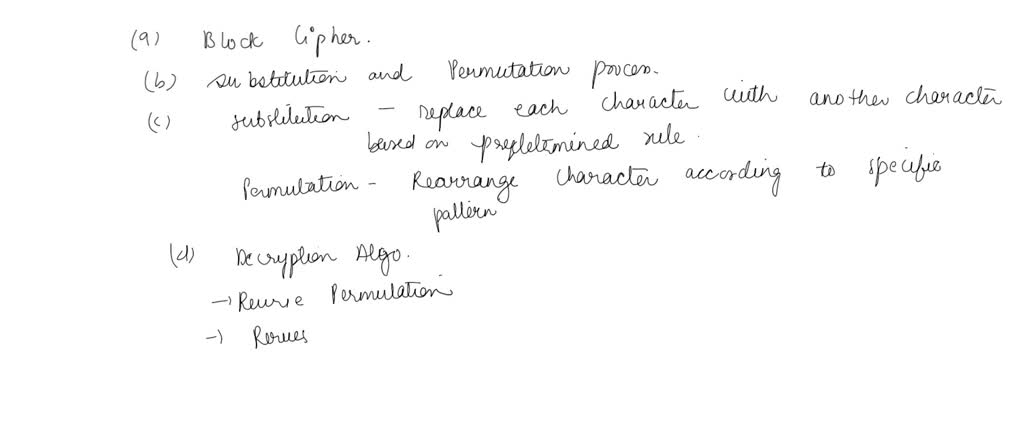 (a) Block Cipher.
(b) substitution and Permutation process.
(c) substitution - replace each character with another character
based on predetermined rule.
Permutation - Rearrange character according to specific
pattern
(d) Decryption Algo.
→ Reverse Permutation
→